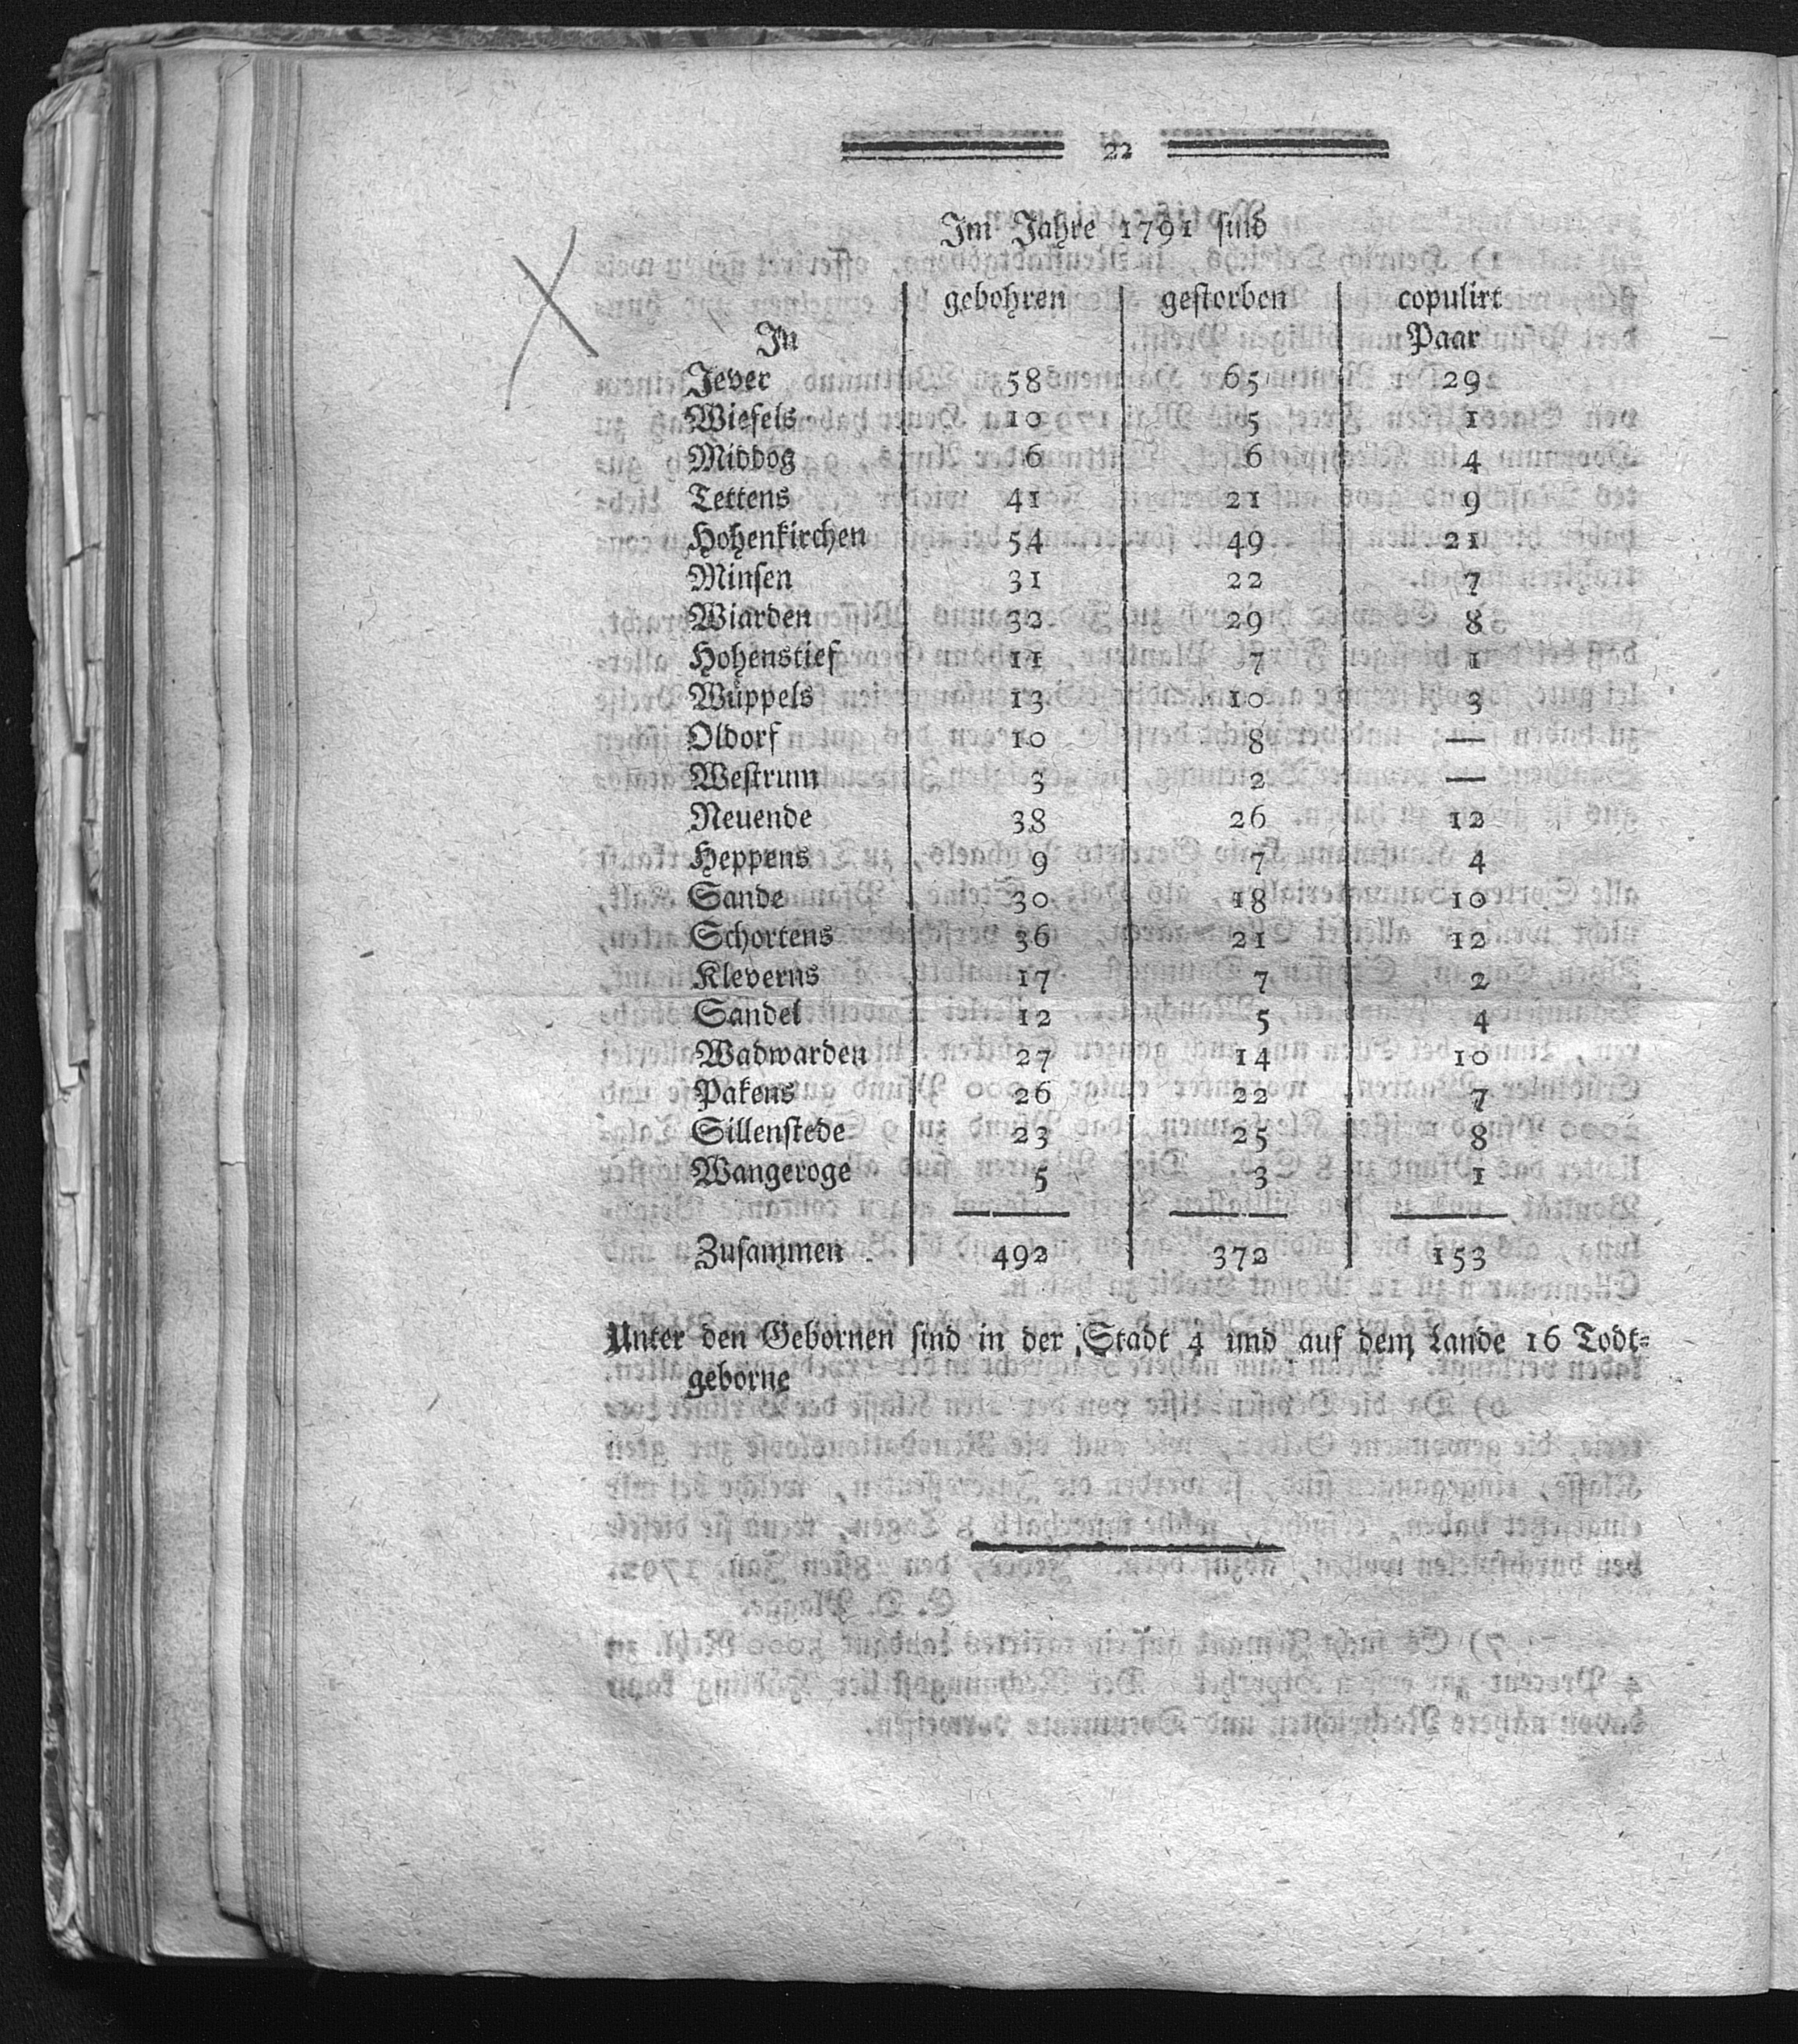 22
Im Jahre 1791 sind
gebohren gestorben copulirt
In Paar
Jever 58 65 29
Wiefels 10 5 1
Middog 6 6 4
Tettens 41 21 9
Hohenkirchen 54 49 21
Minsen 31 22 7
Wiarden 32 29 8
Hohenstief 11 7 1
Wüppels 13 10 3
Oldorf 10 8 —
Westrum 3 2 —
Neuende 38 26 12
Heppens 9 7 4
Sande 30 18 10
Schortens 36 21 12
Kleverns 17 7 2
Sandel 12 5 4
Wadwarden 27 14 10
Pakens 26 22 7
Sillenstede 23 25 8
Wangeroge 5 3 1
Zusammen 492 372 153
Unter den Gebornen sind in der Stadt 4 und auf dem Lande 16 Todt=
geborne